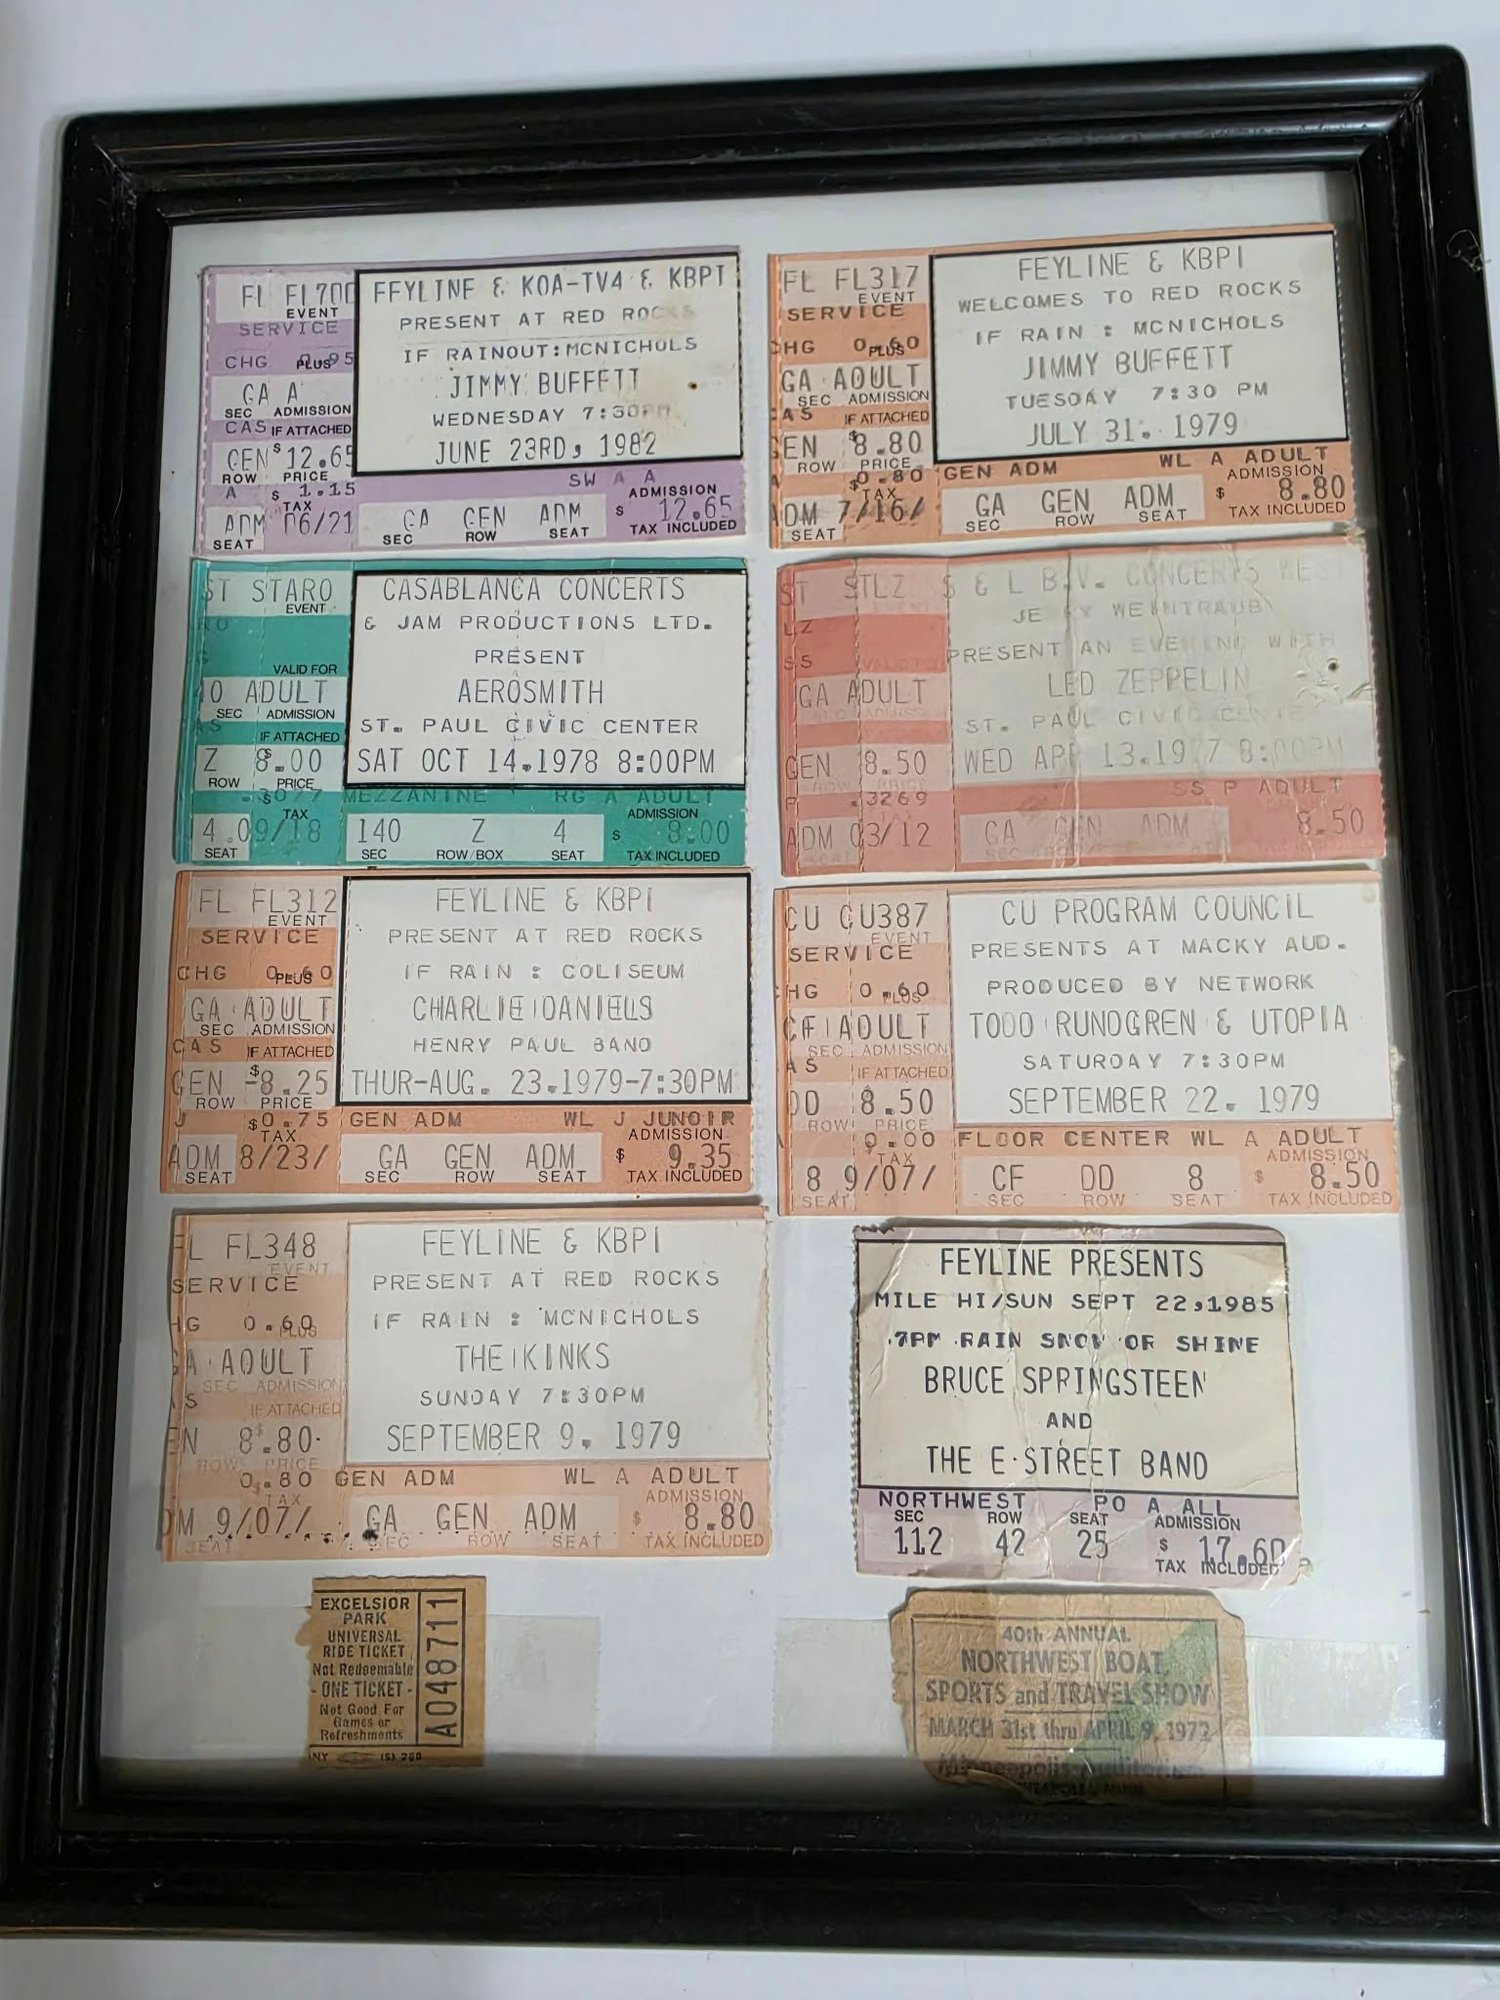 FL FL700
EVENT
SERVICE
CHG PLUS 0.95
GA A
SEC ADMISSION
CAS IF ATTACHED
GEN $ 12.65
ROW PRICE
A $ 1.15
TAX
ADM 06/21
SEAT
FEYLINE & KOA-TV4 & KBPI
PRESENT AT RED ROCKS
IF RAINOUT:MCNICHOLS
JIMMY BUFFETT
WEDNESDAY 7:30PM
JUNE 23RD, 1982
SW A A
ADMISSION
GA GEN ADM $ 12.65
SEC ROW SEAT TAX INCLUDED
FL FL317
EVENT
SERVICE
CHG 0.60
PLUS
GA ADULT
SEC ADMISSION
CAS IF ATTACHED
GEN $ 8.80
ROW PRICE
A $0.80
TAX
ADM 7/16/
SEAT
FEYLINE & KBPI
WELCOMES TO RED ROCKS
IF RAIN : MCNICHOLS
JIMMY BUFFETT
TUESDAY 7:30 PM
JULY 31. 1979
GEN ADM WL A ADULT
ADMISSION
GA GEN ADM $ 8.80
SEC ROW SEAT TAX INCLUDED
ST STARO
EVENT
RO
VALID FOR
10 ADULT
SEC ADMISSION
AS IF ATTACHED
Z $ 8.00
ROW PRICE
$
TAX
4.09/18
SEAT
CASABLANCA CONCERTS
& JAM PRODUCTIONS LTD.
PRESENT
AEROSMITH
ST. PAUL CIVIC CENTER
SAT OCT 14.1978 8:00PM
MEZZANINE RG A ADULT
ADMISSION
140 Z 4 $ 8.00
SEC ROW/BOX SEAT TAX INCLUDED
ST STLZ
EVENT
LZ
SS VALID FOR
GA ADULT
SEC ADMISSION
GEN 8.50
ROW PRICE
P .3269
ADM 03/12
S & L B.V. CONCERTS WEST
JERRY WEINTRAUB
PRESENT AN EVENING WITH
LED ZEPPELIN
ST. PAUL CIVIC CENTER
WED APR 13.1977 8:00PM
SS P ADULT
GA GEN ADM 8.50
FL FL312
EVENT
SERVICE
CHG 0.60
PLUS
GA ADULT
SEC ADMISSION
CAS IF ATTACHED
GEN $ 8.25
ROW PRICE
J $0.75
TAX
ADM 8/23/
SEAT
FEYLINE & KBPI
PRESENT AT RED ROCKS
IF RAIN : COLISEUM
CHARLIE DANIELS
HENRY PAUL BAND
THUR-AUG. 23.1979-7:30PM
GEN ADM WL J JUNOIR
ADMISSION
GA GEN ADM $ 9.35
SEC ROW SEAT TAX INCLUDED
CU CU387
EVENT
SERVICE
CHG 0.60
PLUS
CF ADULT
SEC ADMISSION
AS IF ATTACHED
DD 8.50
ROW PRICE
0.00
TAX
8 9/07/
SEAT
CU PROGRAM COUNCIL
PRESENTS AT MACKY AUD.
PRODUCED BY NETWORK
TODD RUNDGREN & UTOPIA
SATURDAY 7:30PM
SEPTEMBER 22. 1979
FLOOR CENTER WL A ADULT
ADMISSION
CF DD 8 $ 8.50
SEC ROW SEAT TAX INCLUDED
FL FL348
EVENT
SERVICE
HG 0.60
PLUS
GA ADULT
SEC ADMISSION
AS IF ATTACHED
EN $ 8.80
ROW PRICE
0.80
TAX
DM 9/07/
SEAT
FEYLINE & KBPI
PRESENT AT RED ROCKS
IF RAIN : MCNICHOLS
THE KINKS
SUNDAY 7:30PM
SEPTEMBER 9. 1979
GEN ADM WL A ADULT
ADMISSION
GA GEN ADM $ 8.80
SEC ROW SEAT TAX INCLUDED
FEYLINE PRESENTS
MILE HI/SUN SEPT 22,1985
7PM RAIN SNOW OR SHINE
BRUCE SPRINGSTEEN
AND
THE E-STREET BAND
NORTHWEST PO A ALL
SEC ROW SEAT ADMISSION
112 42 25 $ 17.60
TAX INCLUDED
EXCELSIOR
PARK
UNIVERSAL
RIDE TICKET
Not Redeemable
- ONE TICKET -
Not Good For
Games or
Refreshments
A048711
40th ANNUAL
NORTHWEST BOAT,
SPORTS and TRAVEL SHOW
MARCH 31st thru APRIL 9, 1972
Minneapolis Auditorium
MINNEAPOLIS, MINN.